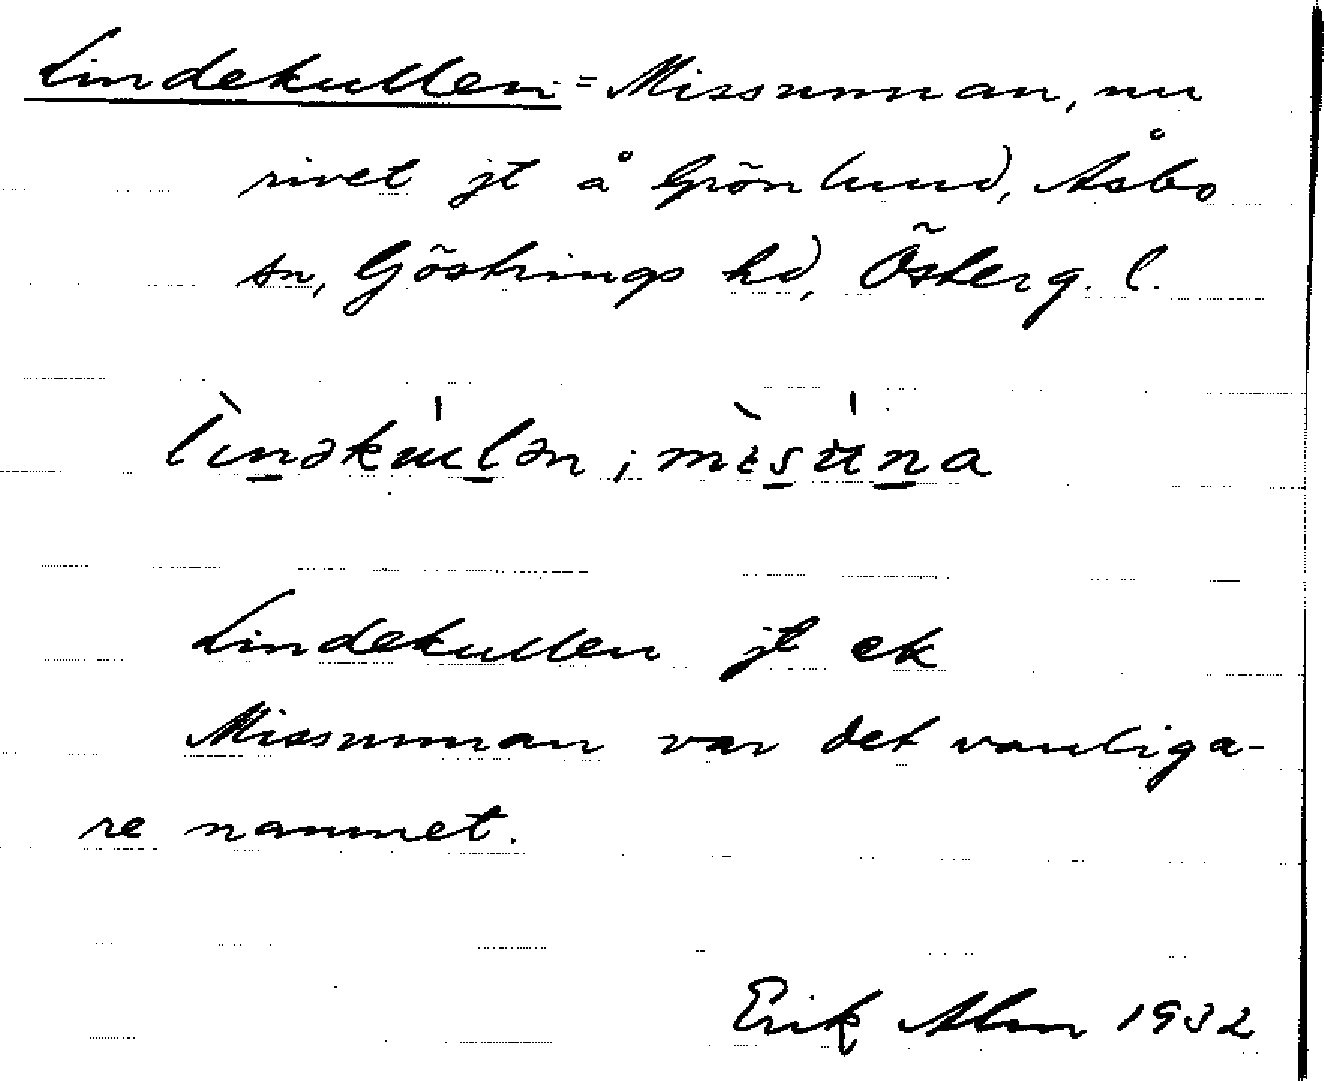 Lindekullen = Missunnan, nu
rivet jt å Grönlund, Åsbo
sn, Göstrings hd, Österg. l.
lìnəkúlən; mìsúna
Lindekullen jt ek
Missunnan var det vanliga-
re namnet.
Erik Alm 1932